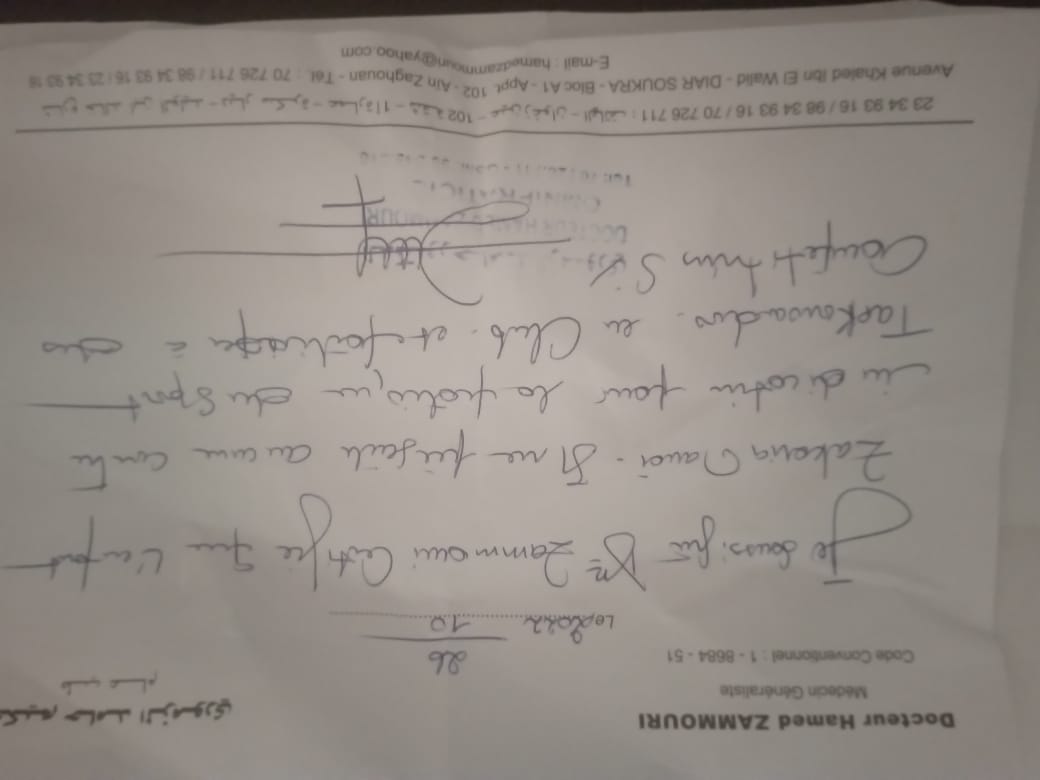 Docteur Hamed ZAMMOURI
Médecin Généraliste
Code Conventionnel : 1 - 8684 - 51
طب عام
26
Le 2022 10
Je soussigné Dr Zammouri Certifie que l'enfant
Zakaria Il ne présente aucune contre
indication pour la pratique du Sport
Taekowandos. en Club. et participer à des
Compétitions
DOCTEUR HAMED ZAMMOURI
23 34 93 16 / 98 34 93 16 / 70 726 711 : الهاتف - عين زغوان - 102 شقة - 11 عمارة - سكرة ديار - الوليد ابن خالد شارع
Avenue Khaled Ibn El Walid - DIAR SOUKRA - Bloc A1 - Appt. 102 - Ain Zaghouan - Tél. : 70 726 711 / 98 34 93 16 / 23 34 93 16
E-mail : hamedzammouri@yahoo.com